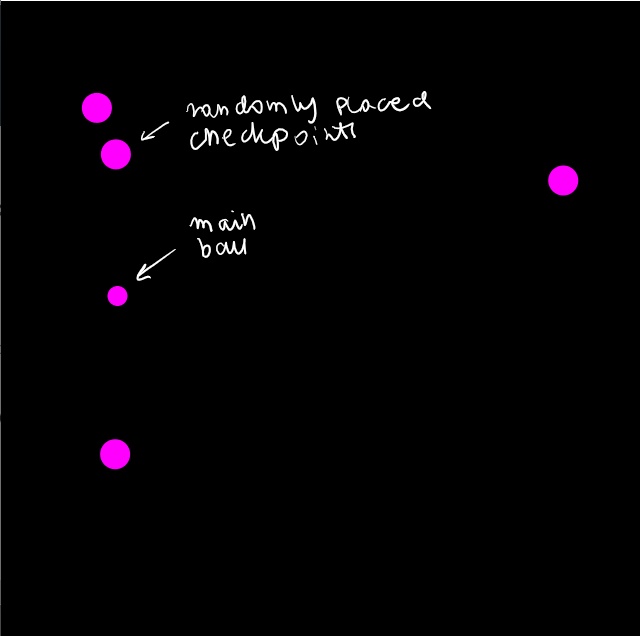 randomly placed
checkpoints
main
ball